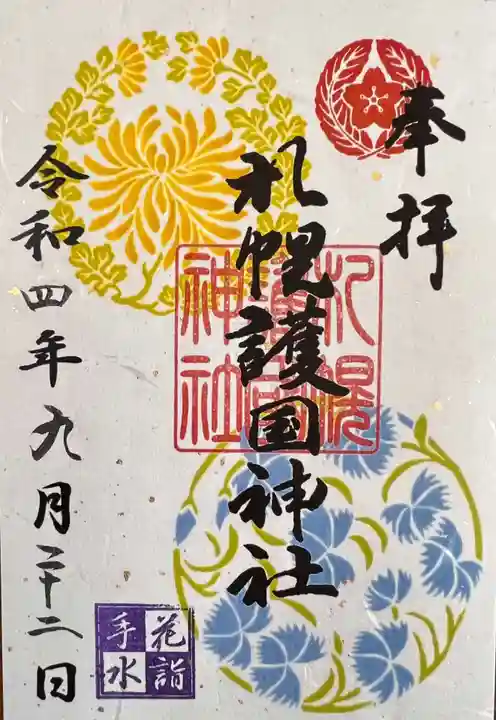 奉拝
札幌護国神社
札幌
護国
神社
令和四年九月二十二日
花詣
手水